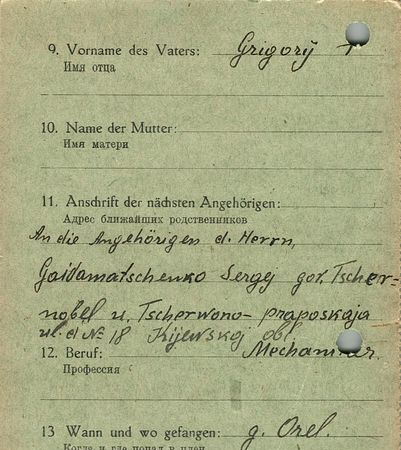 9. Vorname des Vaters: Grigorÿ †
Имя отца
10. Name der Mutter:
Имя матери
11. Anschrift der nächsten Angehörigen:
Адрес ближайших родственников
An die Angehörigen d. Herrn,
Gaidamatschenko Sergej gor. Tscher-
nobel u. Tscherwono-praposkaja
ul. d № 18 Kijewskoj obl.
12. Beruf: Mechaniker
Профессия
13 Wann und wo gefangen: g. Orel.
Когда и где попал в плен